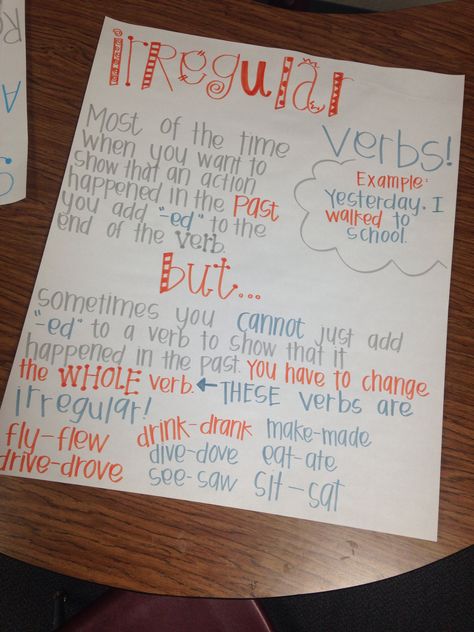 irregular
verbs!
Most of the time
when you want to
show that an action
happened in the past
you add "-ed" to the
end of the verb.
Example:
Yesterday, I
walked to
school.
but...
sometimes you cannot just add
"-ed" to a verb to show that it
happened in the past. you have to change
the WHOLE verb. ← THESE verbs are
irregular!
fly-flew drink-drank make-made
drive-drove dive-dove eat-ate
see-saw sit-sat